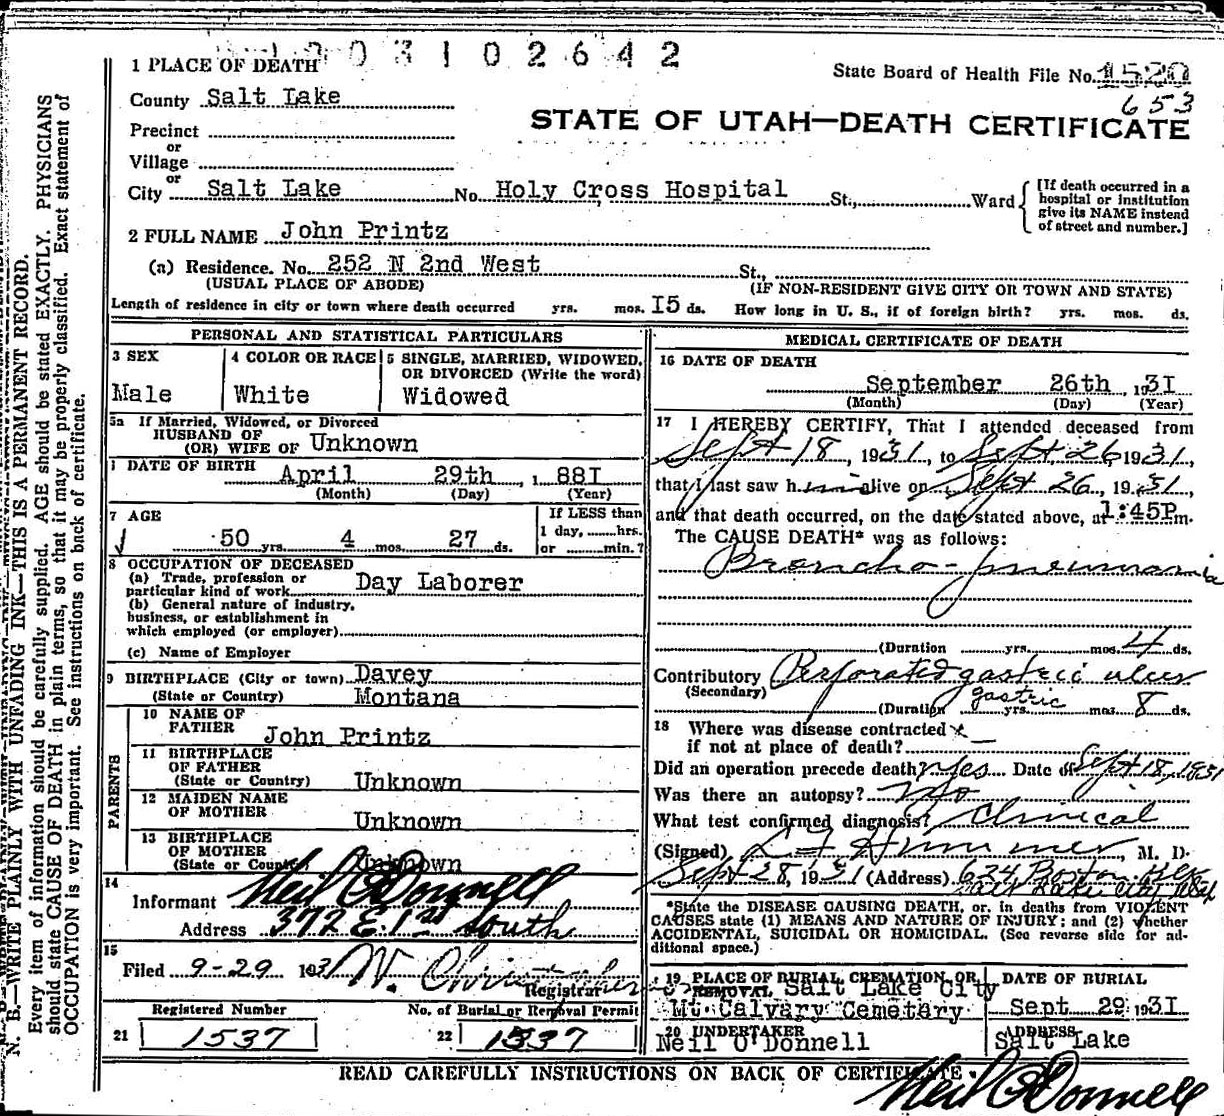 03102642
1 PLACE OF DEATH
State Board of Health File No. 1520
653
County Salt Lake
STATE OF UTAH—DEATH CERTIFICATE
Precinct
or
Village
or
City Salt Lake No. Holy Cross Hospital St., Ward
[If death occurred in a
hospital or institution
give its NAME instead
of street and number.]
2 FULL NAME John Printz
(a) Residence. No. 252 N 2nd West St.,
(USUAL PLACE OF ABODE) (IF NON-RESIDENT GIVE CITY OR TOWN AND STATE)
Length of residence in city or town where death occurred yrs. mos. I5 ds. How long in U. S., if of foreign birth? yrs. mos. ds.
PERSONAL AND STATISTICAL PARTICULARS
3 SEX
Male
4 COLOR OR RACE
White
5 SINGLE, MARRIED, WIDOWED,
OR DIVORCED (Write the word)
Widowed
5a If Married, Widowed, or Divorced
HUSBAND OF
(OR) WIFE OF Unknown
DATE OF BIRTH April 29th, 1 88I
(Month) (Day) (Year)
7 AGE
50 yrs. 4 mos. 27 ds.
If LESS than
1 day, hrs.
or min.?
8 OCCUPATION OF DECEASED
(a) Trade, profession or
particular kind of work Day Laborer
(b) General nature of industry,
business, or establishment in
which employed (or employer)
(c) Name of Employer
9 BIRTHPLACE (City or town) Davey
(State or Country) Montana
PARENTS
10 NAME OF
FATHER John Printz
11 BIRTHPLACE
OF FATHER
(State or Country) Unknown
12 MAIDEN NAME
OF MOTHER Unknown
13 BIRTHPLACE
OF MOTHER
(State or Country) Unknown
14
Informant Neil O'Donnell
Address 372 E. 1st South
15
Filed 9-29 1931
Registrar
Registered Number
21 1537
No. of Burial or Removal Permit
22 1537
MEDICAL CERTIFICATE OF DEATH
16 DATE OF DEATH
September 26th, 193I
(Month) (Day) (Year)
17 I HEREBY CERTIFY, That I attended deceased from
Sept 18, 1931, to Sept. 26 1931,
that I last saw him alive on Sept 26, 1931,
and that death occurred, on the date stated above, at 1:45P m.
The CAUSE DEATH* was as follows:
Broncho-pneumonia
(Duration yrs. mos. 4 ds.
Contributory Perforated gastric ulcer
(Secondary) gastric
(Duration yrs. mos. 8 ds.
18 Where was disease contracted
if not at place of death?
Did an operation precede death? Yes Date of Sept 18, 1931
Was there an autopsy? No
What test confirmed diagnosis? Clinical
(Signed) M. D.
Sept 28, 1931 (Address) 624 Boston Bldg
Salt Lake City Utah
*State the DISEASE CAUSING DEATH, or, in deaths from VIOLENT
CAUSES state (1) MEANS AND NATURE OF INJURY; and (2) whether
ACCIDENTAL, SUICIDAL OR HOMICIDAL. (See reverse side for ad-
ditional space.)
19 PLACE OF BURIAL, CREMATION, OR
REMOVAL Salt Lake City
Mt. Calvary Cemetery
DATE OF BURIAL
Sept 29 193I
20 UNDERTAKER
Neil O'Donnell
ADDRESS
Salt Lake
READ CAREFULLY INSTRUCTIONS ON BACK OF CERTIFICATE.
Neil O'Donnell
N. B.—WRITE PLAINLY WITH UNFADING INK—THIS IS A PERMANENT RECORD.
Every item of information should be carefully supplied. AGE should be stated EXACTLY. PHYSICIANS
should state CAUSE OF DEATH in plain terms, so that it may be properly classified. Exact statement of
OCCUPATION is very important. See instructions on back of certificate.